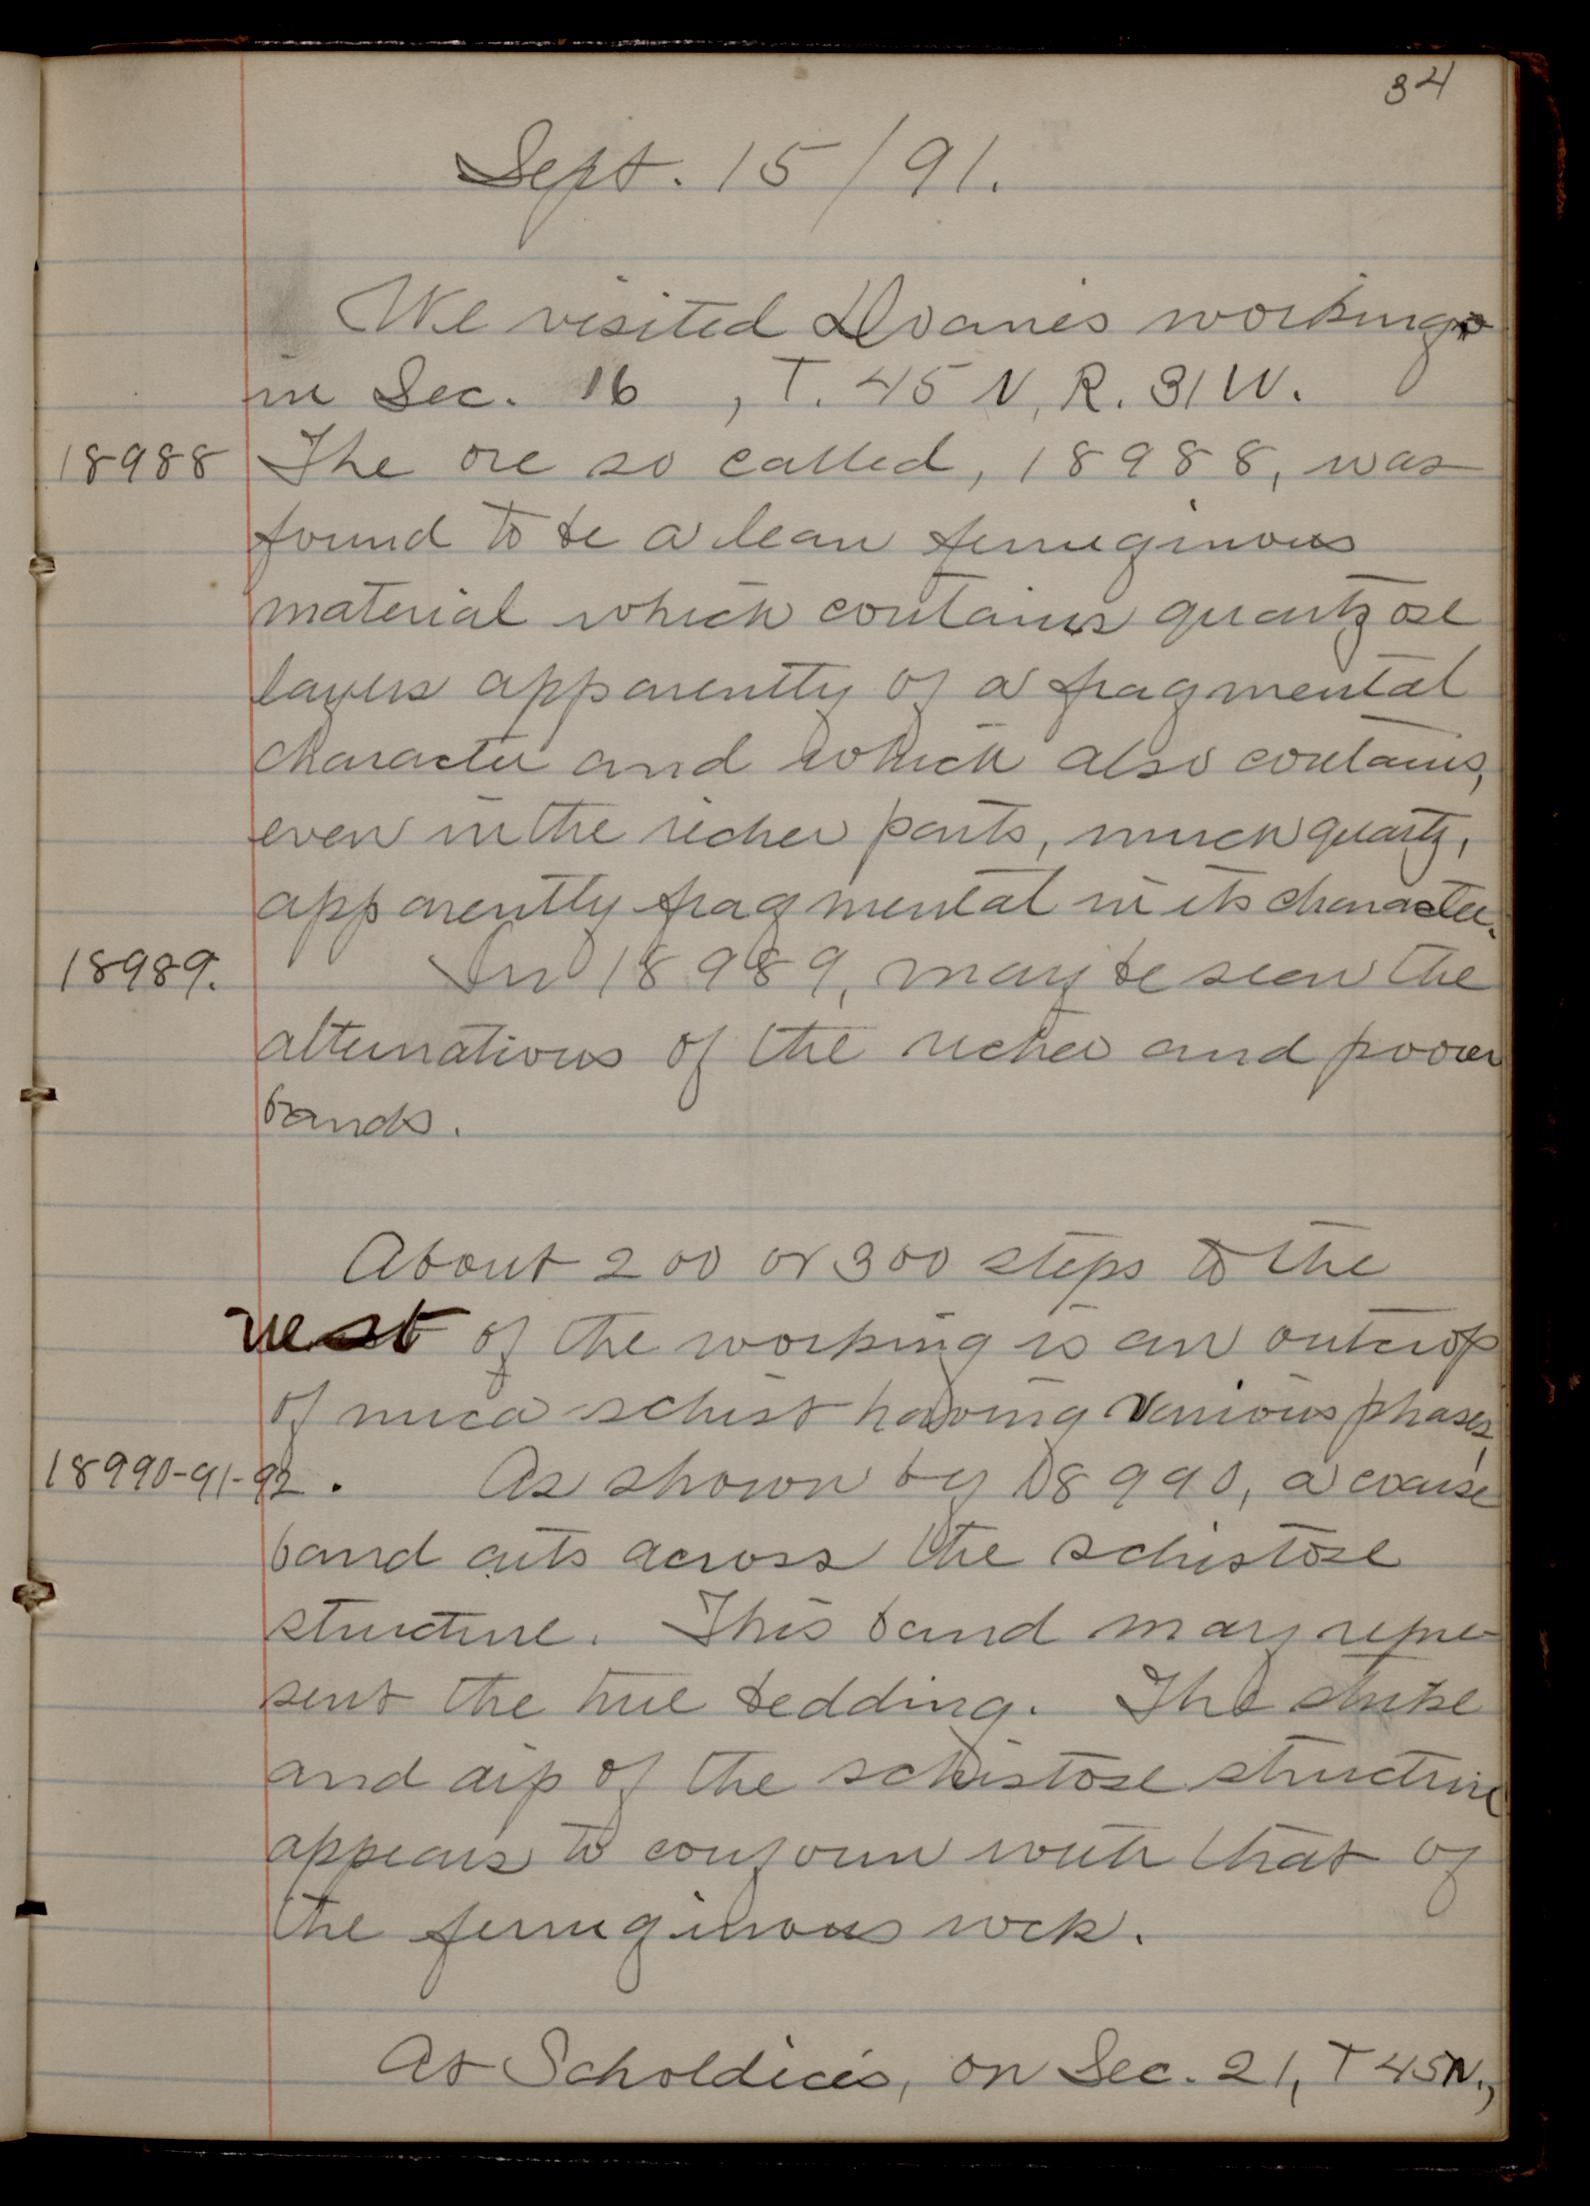 34
Sept. 15/91.
We visited Doane's workings
in Sec. 16 , T. 45 N, R. 31 W.
18988 The ore so called, 18988, was
found to be a lean ferruginous
material which contains quartzose
layers apparently of a fragmental
character and which also contains,
even in the richer parts, much quartz,
apparently fragmental in its character.
18989. In 18989, may be seen the
alternations of the richer and poorer
bands.
About 200 or 300 steps to the
west of the working is an outcrop
of mica schist having various phases,
18990-91-92. As shown by 18990, a coarse
band cuts across the schistose
structure. This band may repre-
sent the true bedding. The strike
and dip of the schistose structure
appears to conform with that of
the ferruginous rock.
At on Sec. 21, T 45N.,